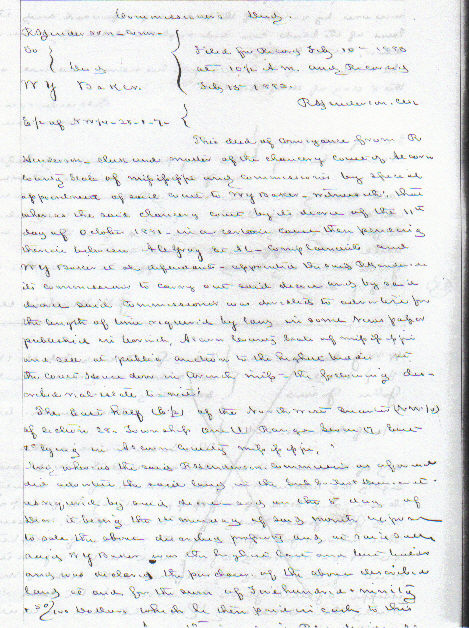 Commissioners Deed.
R Henderson - Com -
To } Deed
W Y Baker.
Filed for Record Feby 10th 1882
at 10½ A.M. and Recorded
Feby 15th 1882.
R Henderson. Clk
E½ of NW¼ - 28 - 1 - 7 -
This deed of conveyance from R
Henderson - clerk and master of the chancery court of Alcorn
County State of Mississippi and commissioner by special
appointment of said court to W Y Baker - witnesseth: that
whereas the said chancery court by its decree of the 11th
day of October 1881 - in a certain cause then pending
therein between et al - Complainants and
W Y Baker et al defendants - appointed the said R Henderson
its commissioner to carry out said decree and by said
decree said commissioner was directed to advertise for
the length of time required by law in some newspaper
published in Corinth, Alcorn County State of Mississippi
and sell at public auction to the highest bidder at
the court house door in Corinth Miss - the following des-
cribed real estate to wit:
The East half (E/2) of the North West Quarter (N.W./4)
of Section 28 - Township One (1) Range Seven (7) East
lying in Alcorn County Mississippi,
And whereas the said R Henderson Commissioner as aforesaid
did advertise the said land in the
as required by said decree - and on the 5 day of
it being the 1st Monday of said month, he
to sale the above described property and at said sale
said W Y Baker was the highest and best bidder
and was declared the purchaser of the above described
land at and for the sum of Two hundred & ninety
& 50/100 Dollars which he then paid in cash to this